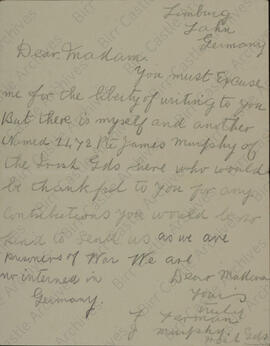 Limburg
Lahn
Germany
Dear Madam.
You must Excuse
me for the liberty of writing to you
But there is myself and another
Named Pte James Murphy of
the Irish Gds here who would
be thankful to you for any
contributions you would be so
kind to send us as we are
prisoners of War We are
now interned in
Germany.
Dear Madam
Yours
Truly
J
Murphy
Irish Gds